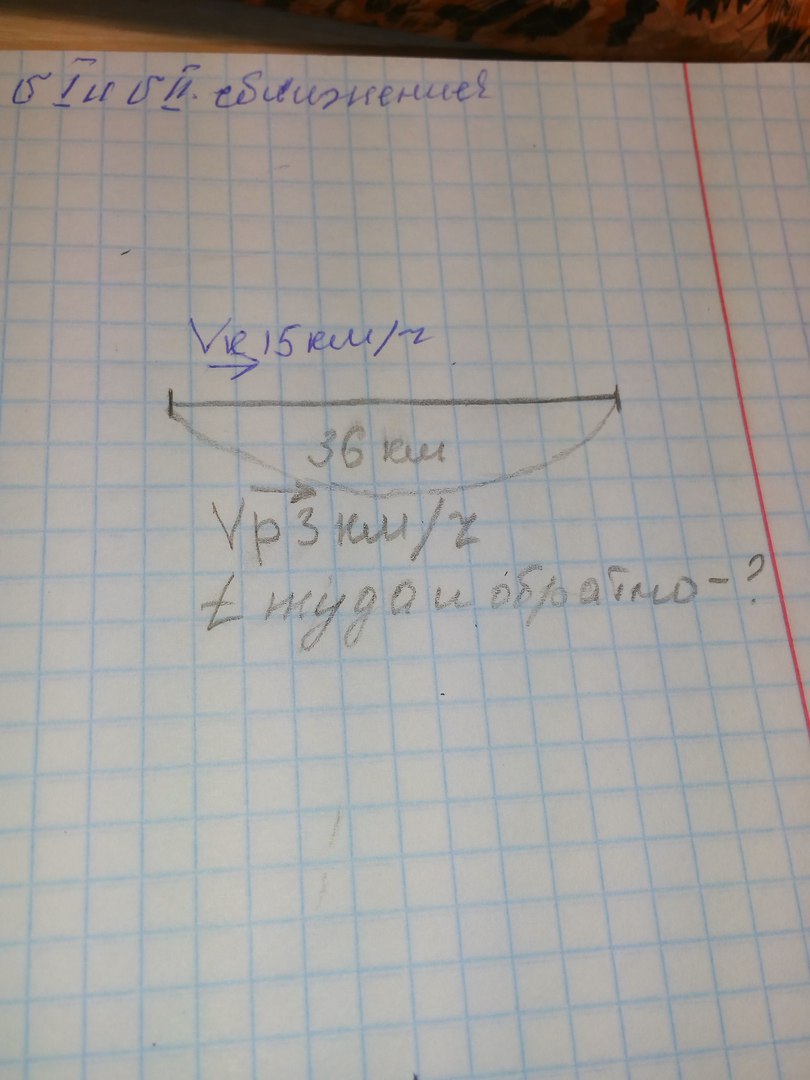 σ I и σ II. сближения
Vк 15 км/ч
36 км
Vр 3 км/ч
t туда и обратно - ?